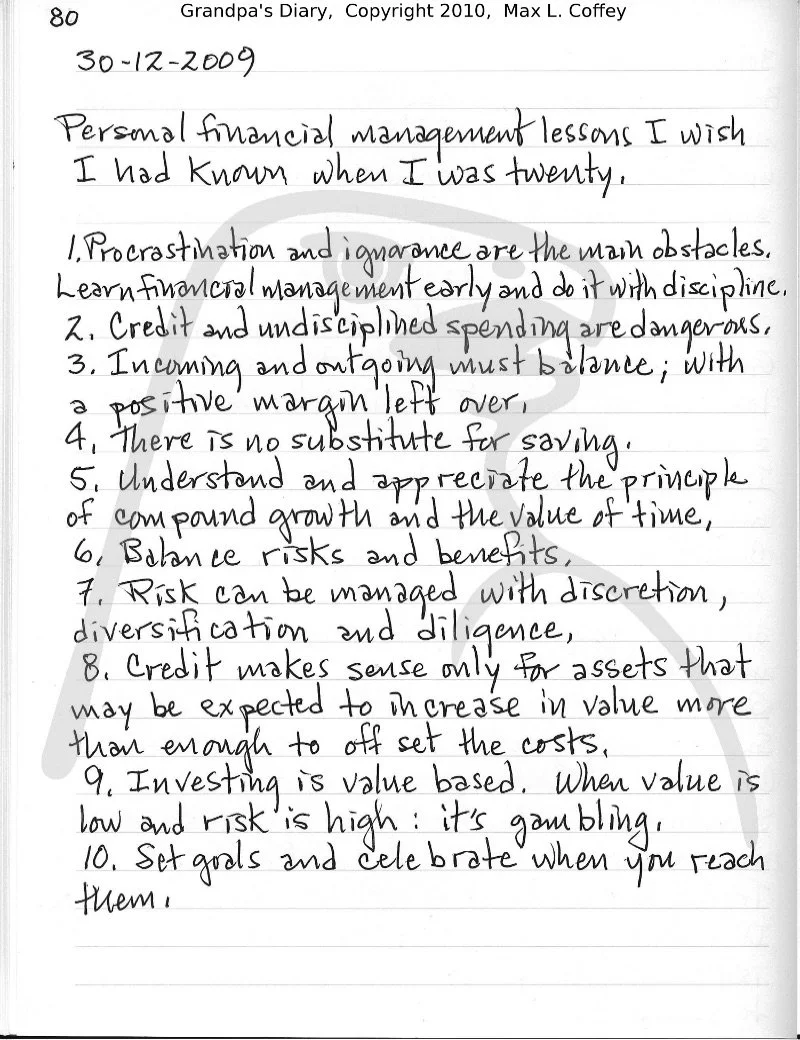 Grandpa's Diary, Copyright 2010, Max L. Coffey
80
30-12-2009
Personal financial management lessons I wish
I had known when I was twenty.
1. Procrastination and ignorance are the main obstacles.
Learn financial management early and do it with discipline.
2. Credit and undisciplined spending are dangerous.
3. Incoming and outgoing must balance; with
a positive margin left over.
4. There is no substitute for saving.
5. Understand and appreciate the principle
of compound growth and the value of time.
6. Balance risks and benefits.
7. Risk can be managed with discretion,
diversification and diligence.
8. Credit makes sense only for assets that
may be expected to increase in value more
than enough to off set the costs.
9. Investing is value based. When value is
low and risk is high: it's gambling.
10. Set goals and celebrate when you reach
them.